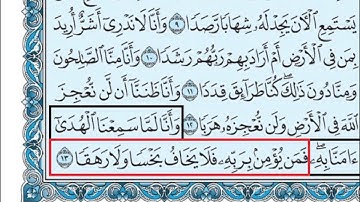 يَسْتَمِعِ ٱلْـَٔانَ يَجِدْ لَهُۥ شِهَابًا رَّصَدًا ٩ وَأَنَّا لَا نَدْرِىٓ أَشَرٌّ أُرِيدَ
بِمَن فِى ٱلْأَرْضِ أَمْ أَرَادَ بِهِمْ رَبُّهُمْ رَشَدًا ١٠ وَأَنَّا مِنَّا ٱلصَّٰلِحُونَ
وَمِنَّا دُونَ ذَٰلِكَ كُنَّا طَرَآئِقَ قِدَدًا ١١ وَأَنَّا ظَنَنَّآ أَن لَّن نُّعْجِزَ
ٱللَّهَ فِى ٱلْأَرْضِ وَلَن نُّعْجِزَهُۥ هَرَبًا ١٢ وَأَنَّا لَمَّا سَمِعْنَا ٱلْهُدَىٰٓ
ءَامَنَّا بِهِۦ فَمَن يُؤْمِنۢ بِرَبِّهِۦ فَلَا يَخَافُ بَخْسًا وَلَا رَهَقًا ١٣